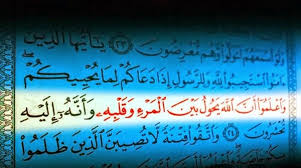 وَلَوْ أَسْمَعَهُمْ لَتَوَلَّوا۟ وَّهُم مُّعْرِضُونَ ٢٣ يَٰٓأَيُّهَا ٱلَّذِينَ
ءَامَنُوا۟ ٱسْتَجِيبُوا۟ لِلَّهِ وَلِلرَّسُولِ إِذَا دَعَاكُمْ لِمَا يُحْيِيكُمْ
وَٱعْلَمُوٓا۟ أَنَّ ٱللَّهَ يَحُولُ بَيْنَ ٱلْمَرْءِ وَقَلْبِهِۦ وَأَنَّهُۥٓ إِلَيْهِ
تُحْشَرُونَ ٢٤ وَٱتَّقُوا۟ فِتْنَةً لَّا تُصِيبَنَّ ٱلَّذِينَ ظَلَمُوا۟